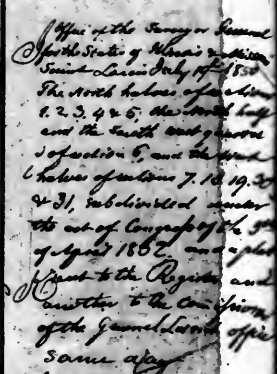 Office of the Surveyor General
for the States of Illinois & Missouri
Saint Louis July 1850
The North halves of sections
1. 2. 3. 4 & 5, the North half
and the South east quarter
of section 6, and the west
halves of sections 7. 18. 19. 30
& 31, subdivided under
the act of Congress of the
of April 1832. and a plat
sent to the Register and
another to the Com
of the General Land office
same day